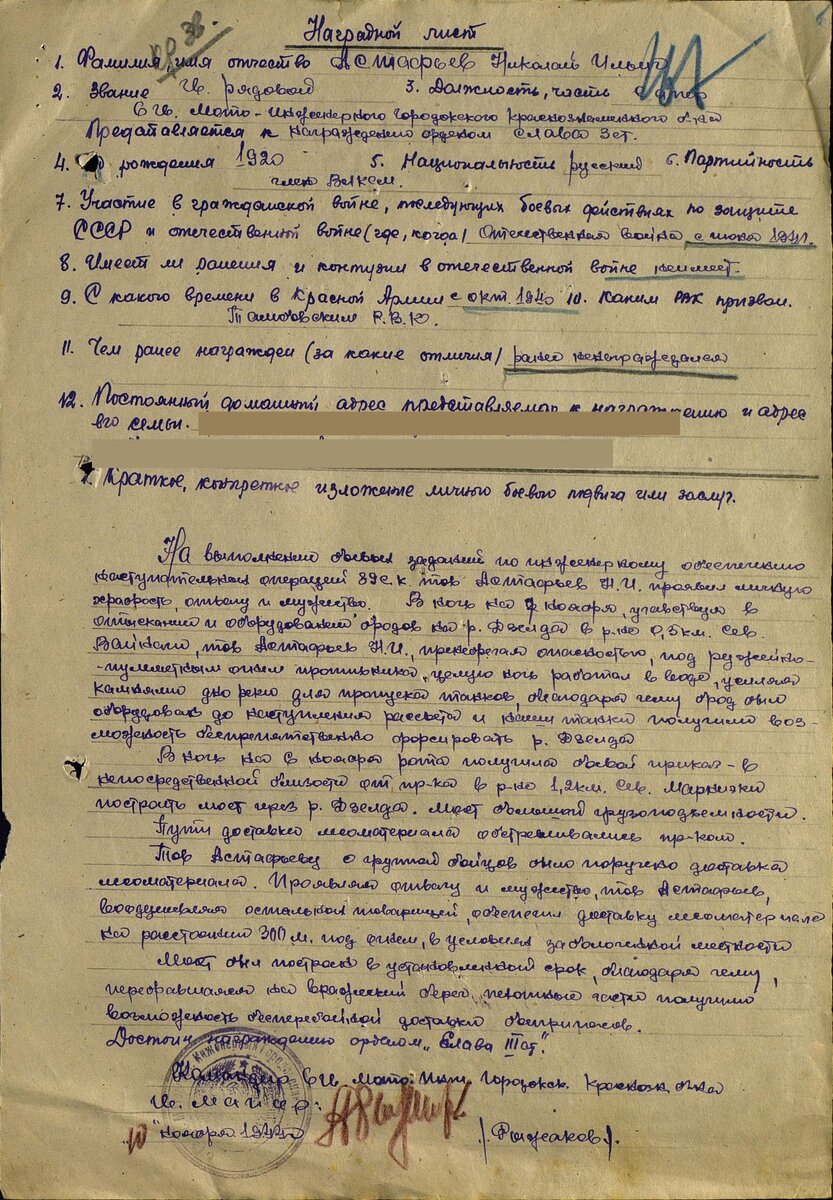 Наградной лист
1. Фамилия, имя отчество Астафьев Николай Ильич
2. Звание гв. рядовой 3. Должность, часть
6 гв. мото-инженерного Городокского Краснознаменного б-на
Представляется к награждению орденом Слава 3 ст.
4. рождения 1920 5. Национальность русский 6. Партийность
член ВЛКСМ.
7. Участие в гражданской войне, последующих боевых действиях по защите
СССР и отечественной войне (где, когда) Отечественная война с июня 1941г.
8. Имеет ли ранения и контузии в отечественной войне неимеет.
9. С какого времени в Красной Армии с окт. 1940 10. Каким РВК призван.
Тамбовским Р.В.К.
11. Чем ранее награжден (за какие отличия) ранее ненаграждался
12. Постоянный домашний адрес представляемаго к награждению и адрес
его семьи.
Краткое, конкретное изложение личного боевого подвига или заслуг.
На выполнении боевых заданий по инженерному обеспечению
наступательных операций 83 с.к. тов Астафьев Н.И. проявил личную
храбрость, отвагу и мужество. В ночь на ноября, участвуя в
отыскании и оборудовании бродов на р. Дзелда в р-не 0,5 км. сев.
тов Астафьев Н.И., пренебрегая опасностью, под ружейно-
-пулеметным огнем противника, целую ночь работал в воде, усиляя
камнями дно реки для пропуска танков, благодаря чему брод был
оборудован до наступления рассвета и наши танки получили воз-
можность беспрепятственно форсировать р. Дзелда
В ночь на ноября рота получила боевой приказ - в
непосредственной близости от пр-ка в р-не 1,2 км. сев.
построить мост через р. Дзелда. Мост большой грузоподъемности.
Пути доставки лесоматериала обстреливались пр-ком.
Тов Астафьеву с группой бойцов было поручено доставка
лесоматериала. Проявляя отвагу и мужество, тов Астафьев,
воодушевляя остальных товарищей, обеспечил доставку лесоматериала
на расстоянии 300 м. под огнем, в условиях заболоченной местности
Мост был построен в установленный срок, благодаря чему,
перебравшаяся на вражеский берег, пехотные части получили
возможность бесперебойной доставки боеприпасов.
Достоин награждению орденом „Слава III ст".
Командир 6 гв. мото-инж. Городокск. Краснозн. б-на
гв. майор:
10" ноября 1944г /Рыжаков/.